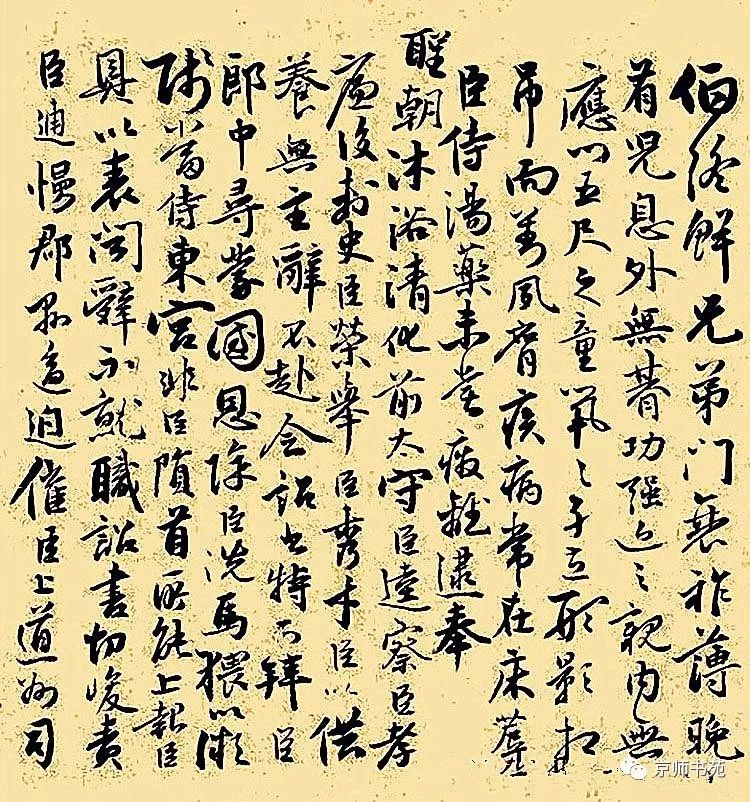 伯終鮮兄弟门衰祚薄晚
有兒息外無朞功强近之親内無
應门五尺之童煢々孑立形影相
吊而劉夙膺疾病常在床蓐
臣侍湯藥未嘗廢離逮奉
聖朝沐浴清化前太守臣逵察臣孝
廉後刺史臣榮舉臣秀才臣以供
養無主辭不赴命詔書特下拜臣
郎中尋蒙國恩除臣洗馬猥以微
賤當侍東宫非臣隕首所能上報臣
具以表闻辭不就職詔書切峻責
臣逋慢郡縣逼迫催臣上道州司
京师书苑